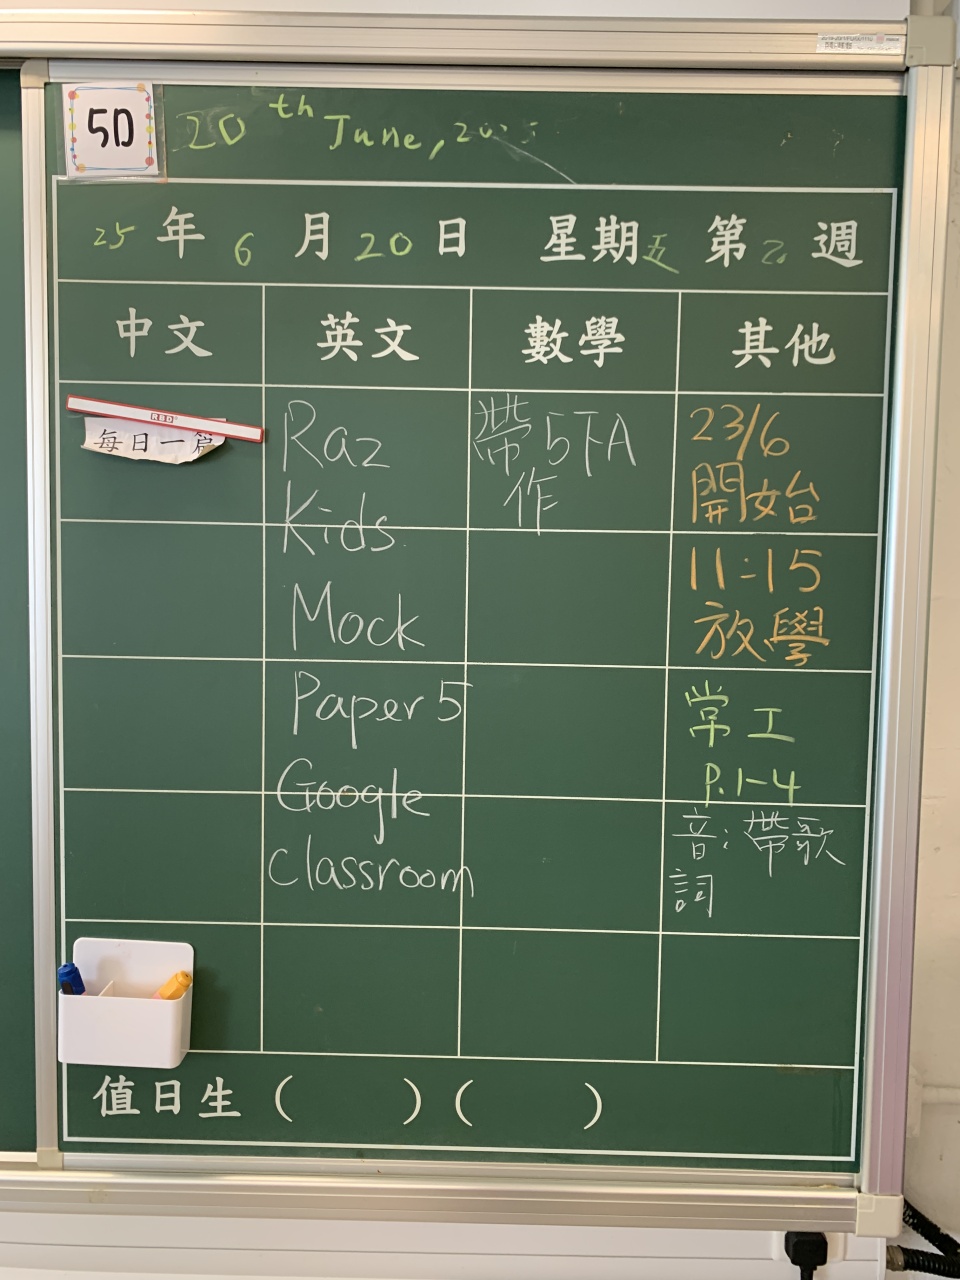 5D
20th June, 2025
25年6月20日 星期五 第2週
中文 英文 數學 其他
RBD
每日一篇
Raz
Kids
Mock
Paper 5
Google
Classroom
帶5下A
作
23/6
開始
11:15
放學
常工
P.1-4
音:帶歌
詞
值日生 ( ) ( )